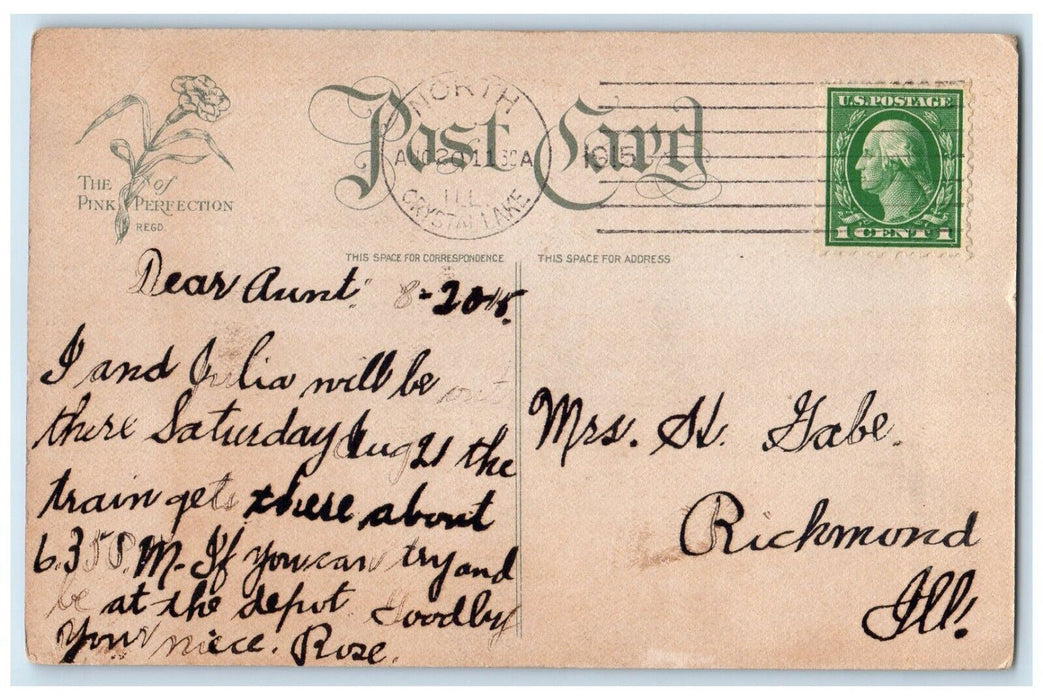 THE of
PINK PERFECTION
REGD.
Post Card
NORTH
AUG 20 11 30A
1915
ILL.
CRYSTAL LAKE
U.S. POSTAGE
1 CENT 1
THIS SPACE FOR CORRESPONDENCE
THIS SPACE FOR ADDRESS
Dear Aunt: 8-20-15.
I and Julia will be out
there Saturday Aug 21 the
train gets there about
6.35 P.M. If you can try and
be at the depot. Goodby
Your niece. Rose.
Mrs. H. Gabe.
Richmond
Ill.